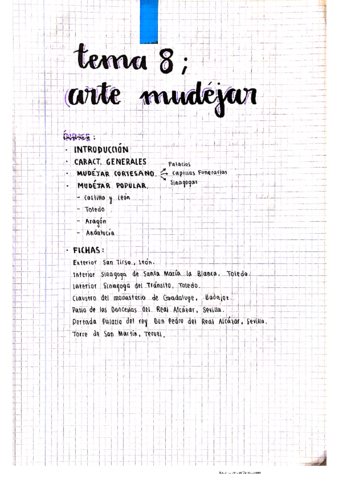 tema 8;
arte mudéjar
ÍNDICE:
· INTRODUCCIÓN
· CARACT. GENERALES
· MUDÉJAR CORTESANO. Palacios
Capillas Funerarias
Sinagogas
· MUDÉJAR POPULAR.
- Castilla y León
- Toledo
- Aragón
- Andalucía
· FICHAS:
Exterior San Tirso, León.
Interior Sinagoga de Santa María la Blanca. Toledo.
Interior Sinagoga del Tránsito, Toledo.
Claustro del monasterio de Guadalupe, Badajoz.
Patio de las Doncellas del Real Alcázar, Sevilla.
Portada Palacio del rey Don Pedro del Real Alcázar, Sevilla.
Torre de San Martín, Teruel.